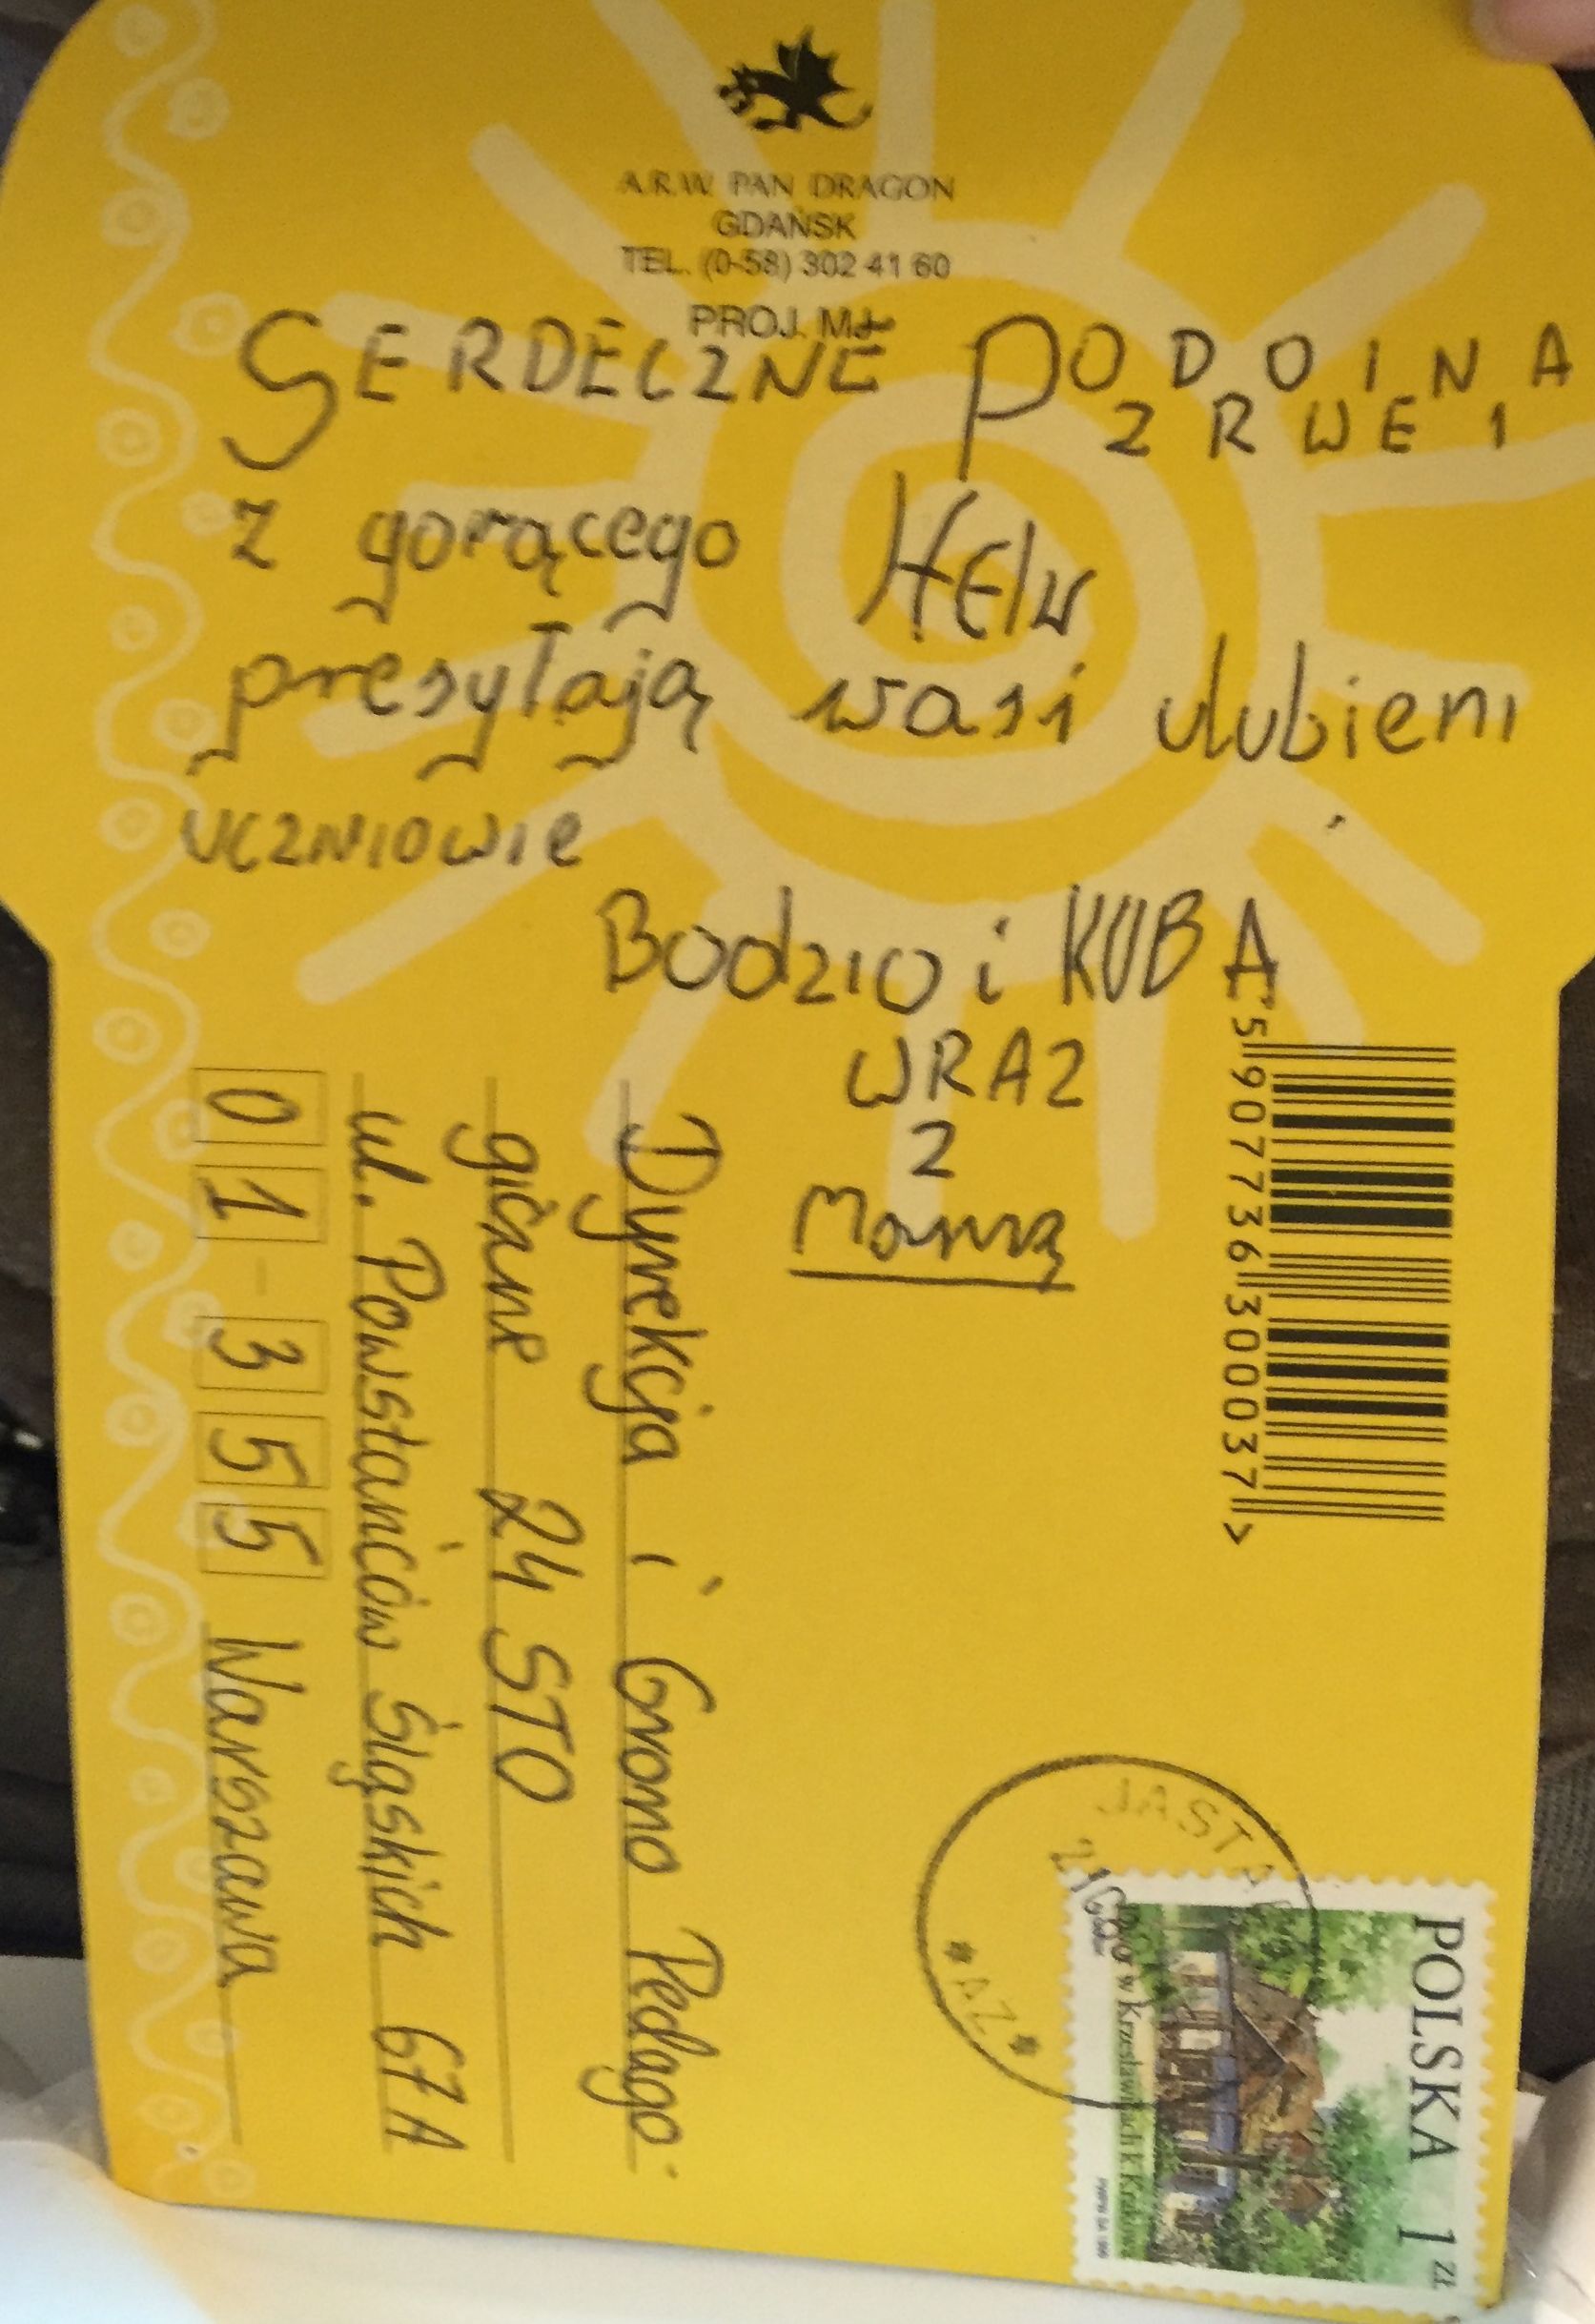 A.R.W. PAN DRAGON
GDAŃSK
TEL. (0-58) 302 41 60
PROJ. MJ
SERDECZNE POZDROWIENIA
z gorącego HElu
presyłają wasi ulubieni
UCZNIOWIE
Bodzio i KUBA
WRAZ
Z
Mamą
5 907736 300037 >
Dyrekcja i Grono Pedago-
giczne 24 STO
ul. Powstańców Śląskich 67A
01-355 Warszawa
JASTAR
*AZ*
POLSKA 1 ZŁ
Dwór w Krzesławicach k. Krakowa